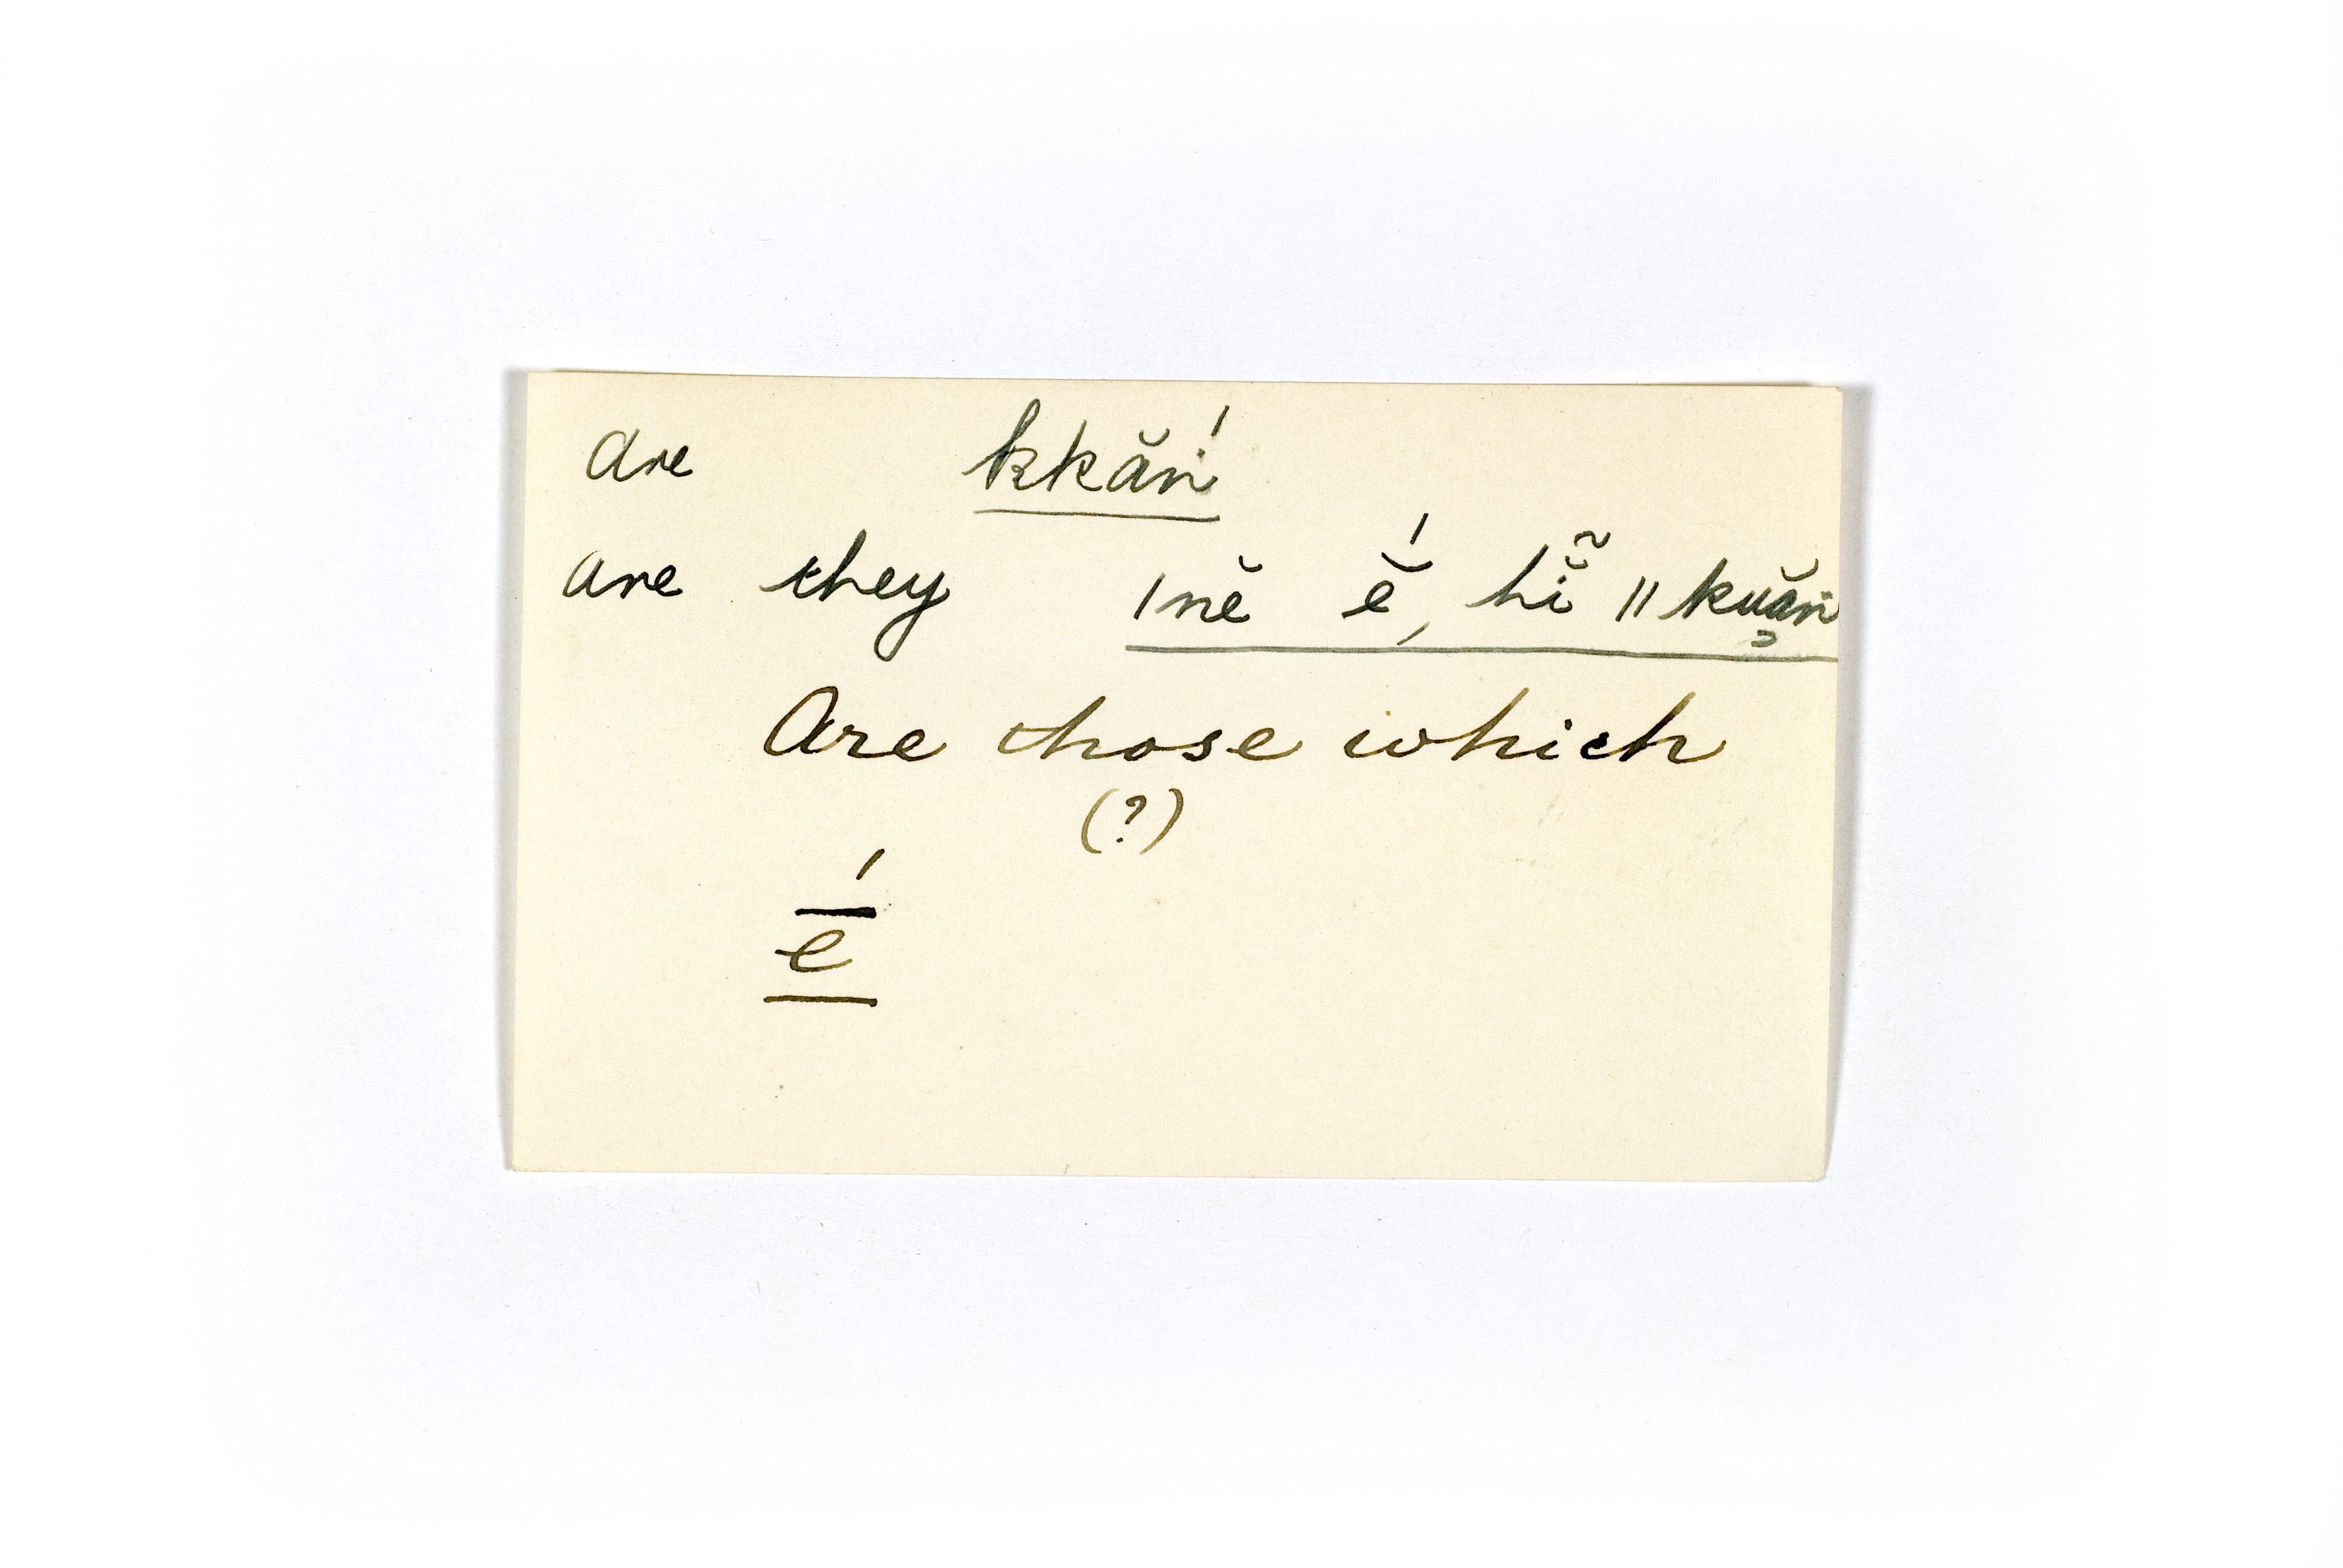 are kkăṅ́
are they |nĕ ĕ́, hĭ̃ ||kuă̱ṅ
Are those which
(?)
ḗ